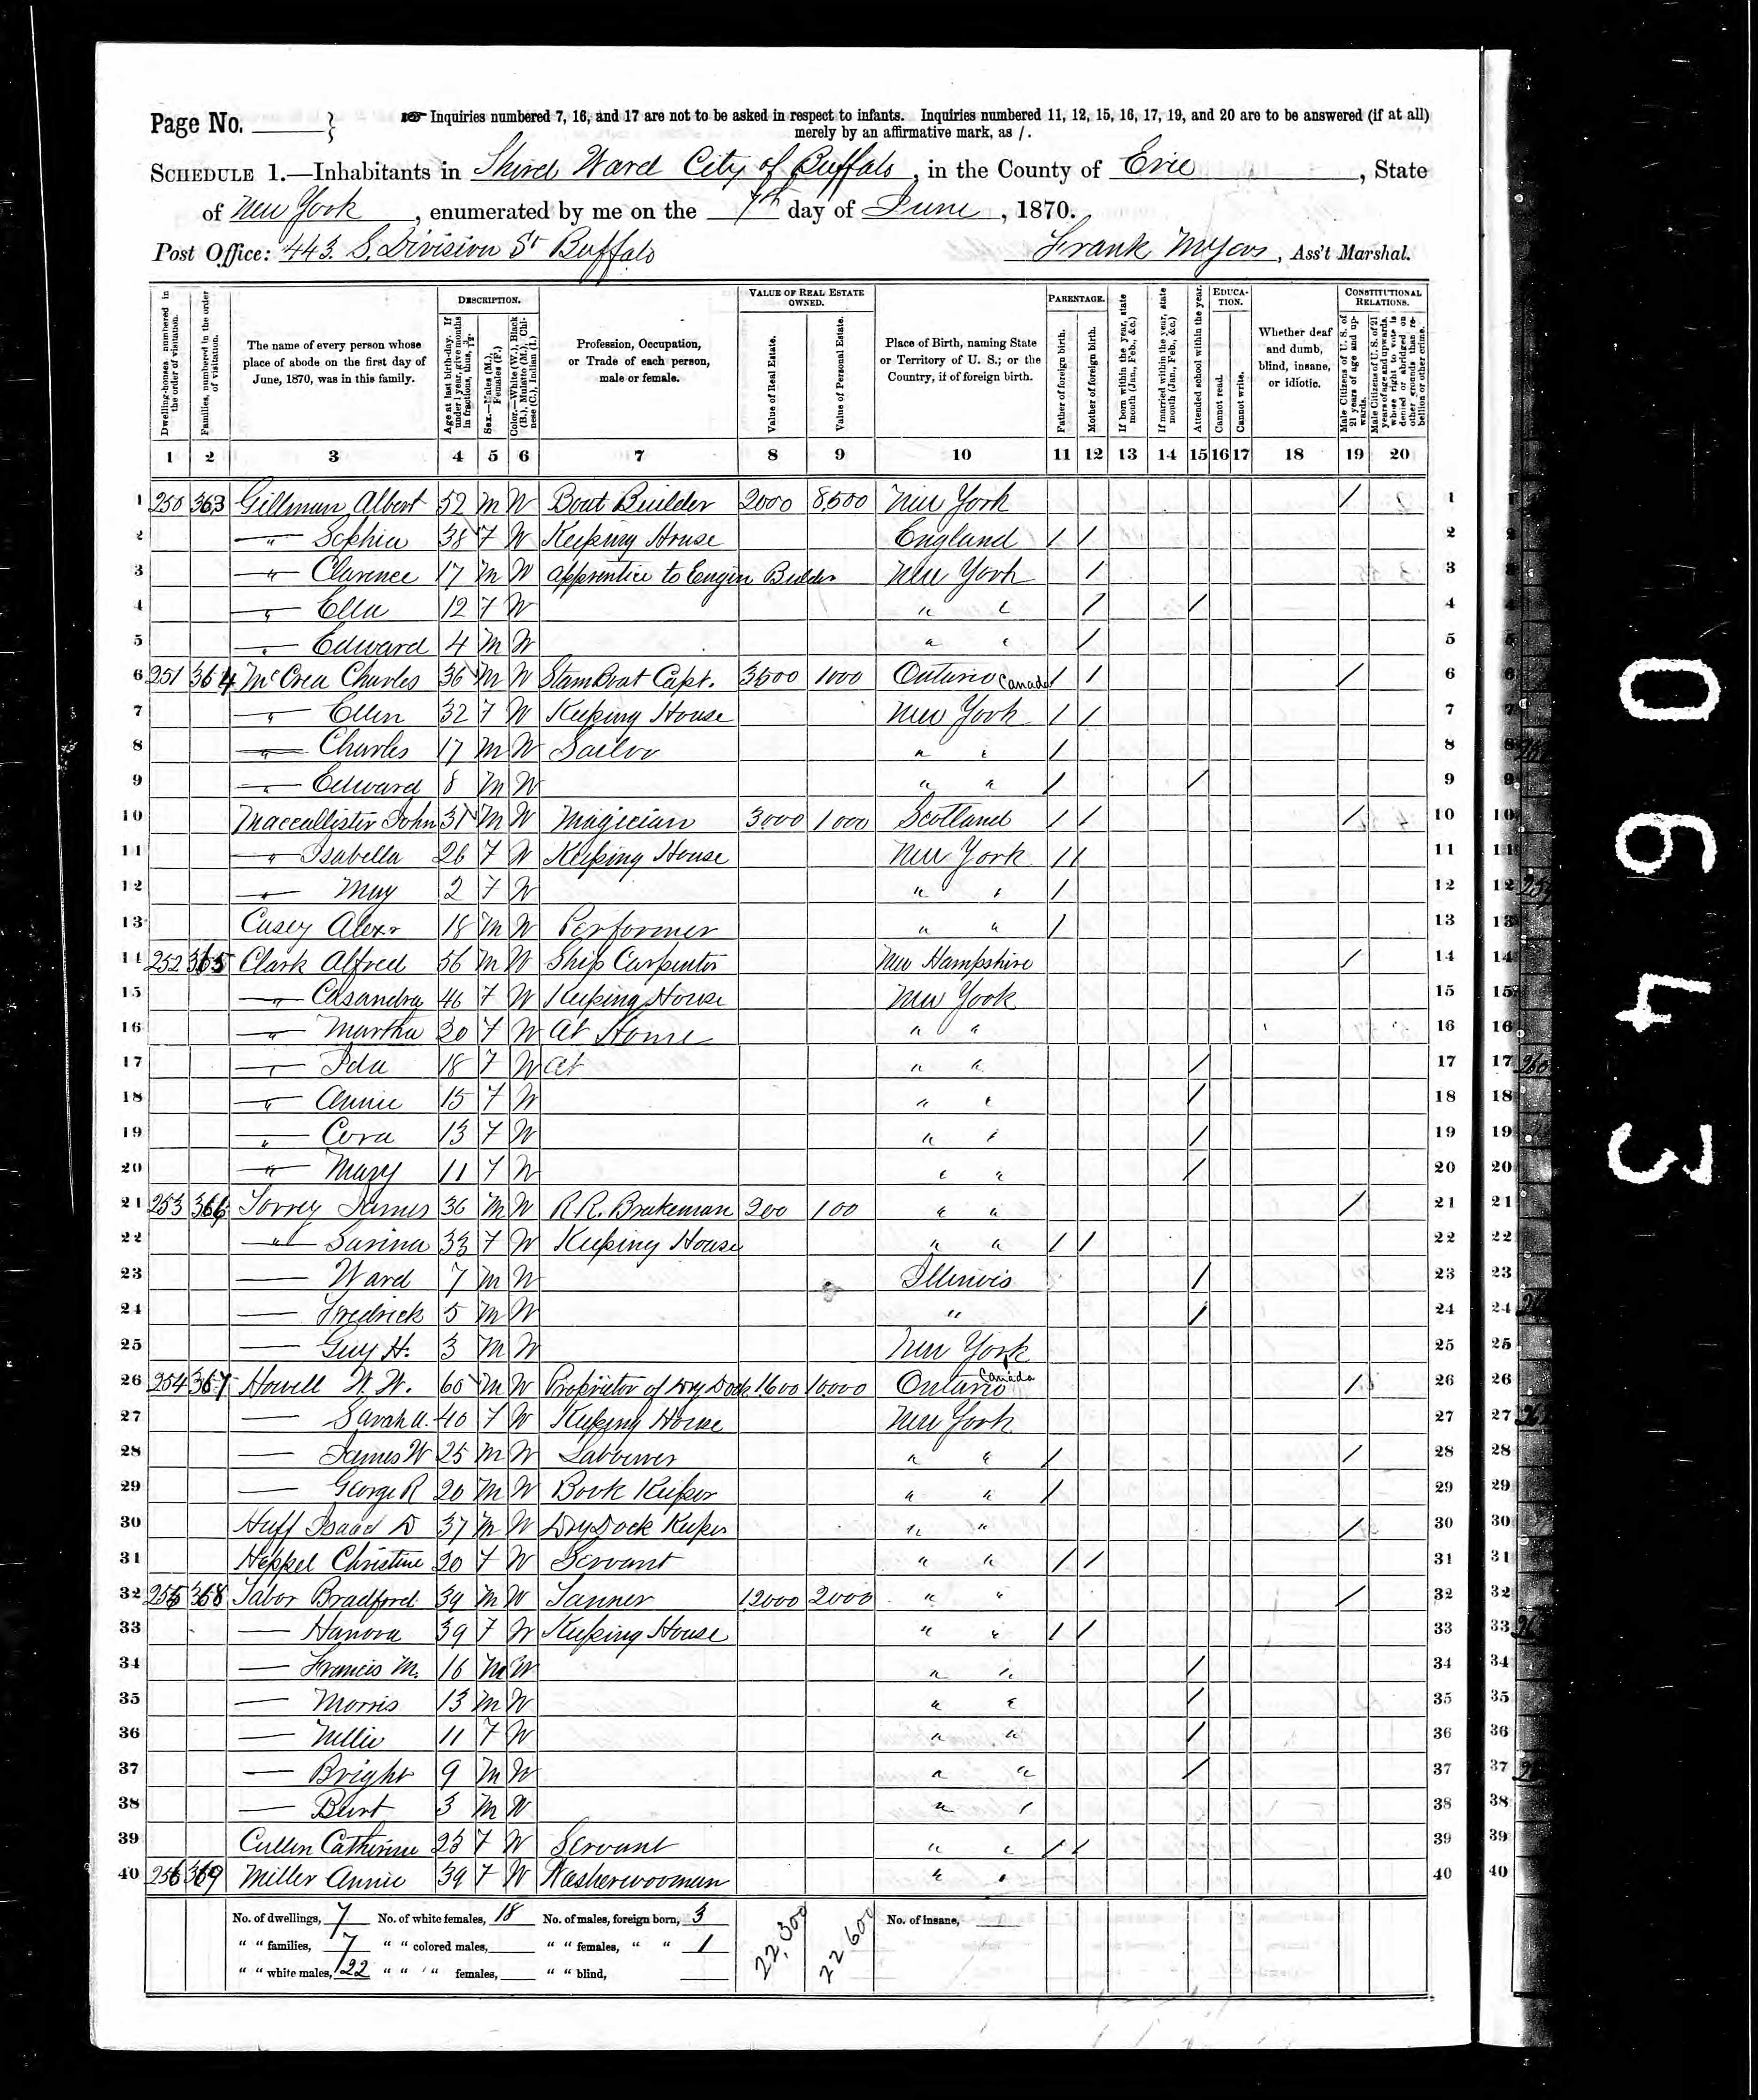 Page No. ______}
☞ Inquiries numbered 7, 16, and 17 are not to be asked in respect to infants. Inquiries numbered 11, 12, 15, 16, 17, 19, and 20 are to be answered (if at all)
merely by an affirmative mark, as /.
SCHEDULE 1.—Inhabitants in Third Ward City of Buffalo, in the County of Erie, State
of New York, enumerated by me on the 7th day of June, 1870.
Post Office: 443 S. Division St Buffalo
Frank Myers, Ass't Marshal.
DESCRIPTION. VALUE OF REAL ESTATE OWNED. PARENTAGE. EDUCATION. CONSTITUTIONAL RELATIONS.
Dwelling-houses, numbered in the order of visitation.
Families, numbered in the order of visitation.
The name of every person whose place of abode on the first day of June, 1870, was in this family.
Age at last birth-day. If under 1 year, give months in fractions, thus, 3/12.
Sex.—Males (M.), Females (F.)
Color.—White (W.), Black (B.), Mulatto (M.), Chinese (C.), Indian (I.)
Profession, Occupation, or Trade of each person, male or female.
Value of Real Estate.
Value of Personal Estate.
Place of Birth, naming State or Territory of U. S.; or the Country, if of foreign birth.
Father of foreign birth.
Mother of foreign birth.
If born within the year, state month (Jan., Feb., &c.)
If married within the year, state month (Jan., Feb., &c.)
Attended school within the year.
Cannot read.
Cannot write.
Whether deaf and dumb, blind, insane, or idiotic.
Male Citizens of U. S. of 21 years of age and upwards.
Male Citizens of U. S. of 21 years of age and upwards, whose right to vote is denied or abridged on other grounds than rebellion or other crime.
1 2 3 4 5 6 7 8 9 10 11 12 13 14 15 16 17 18 19 20
1 250 363 Gillman Albert 52 M W Boat Builder 2000 8,500 New York / 1
2 " Sophia 38 F W Keeping House England / / 2
3 " Clarence 17 M W Apprentice to Engin Builder New York / 3
4 " Ella 12 F W " " / / 4
5 " Edward 4 M W " " / 5
6 251 364 McCrea Charles 36 M W Stam Boat Capt. 3500 1000 Ontario Canada / / / 6
7 " Ellen 32 F W Keeping House New York / / 7
8 " Charles 17 M W Sailor " " / 8
9 " Edward 8 M W " " / / 9
10 Maccallister John 31 M W Magician 3000 1000 Scotland / / / 10
11 " Isabella 26 F W Keeping House New York / / 11
12 " May 2 F W " " / 12
13 Casey Alexr 18 M W Performer " " / 13
14 252 365 Clark Alfred 56 M W Ship Carpenter New Hampshire / 14
15 " Casandra 46 F W Keeping House New York 15
16 " Martha 20 F W At Home " " 16
17 " Ida 18 F W At " " / 17
18 " Annie 15 F W " " / 18
19 " Cora 13 F W " " / 19
20 " Mary 11 F W " " / 20
21 253 366 Torrey James 36 M W R.R. Brakeman 200 100 " " / 21
22 " Sarina 33 F W Keeping House " " / / 22
23 — Ward 7 M W Illinois / 23
24 — Fredrick 5 M W " / 24
25 — Guy H. 3 M W New York 25
26 254 367 Howell W. W. 60 M W Proprietor of Dry Dock 1600 10,000 Ontario Canada / 26
27 — Sarah A. 40 F W Keeping House New York 27
28 — James W 25 M W Labourer " " / / 28
29 — George R 20 M W Book Keeper " " / 29
30 Huff Isaac D 37 M W Dry Dock Keeper " " / 30
31 Heppel Christine 20 F W Servant " " / / 31
32 255 368 Tabor Bradford 39 M W Tanner 12000 2000 " " / 32
33 — Hanora 39 F W Keeping House " " / / 33
34 — Francis M. 16 M W " " / 34
35 — Morris 13 M W " " / 35
36 — Nellie 11 F W " " / 36
37 — Bright 9 M W " " / 37
38 — Burt 3 M W " " 38
39 Cullen Catherine 23 F W Servant " " / / 39
40 256 369 Miller Annie 39 F W Washerwooman " " 40
No. of dwellings, 7 No. of white females, 18 No. of males, foreign born, 3 22,300 22 600 No. of insane, ____
" " families, 7 " " colored males, ____ " " females, " " 1
" " white males, 22 " " " females, ____ " " blind, ____
0643